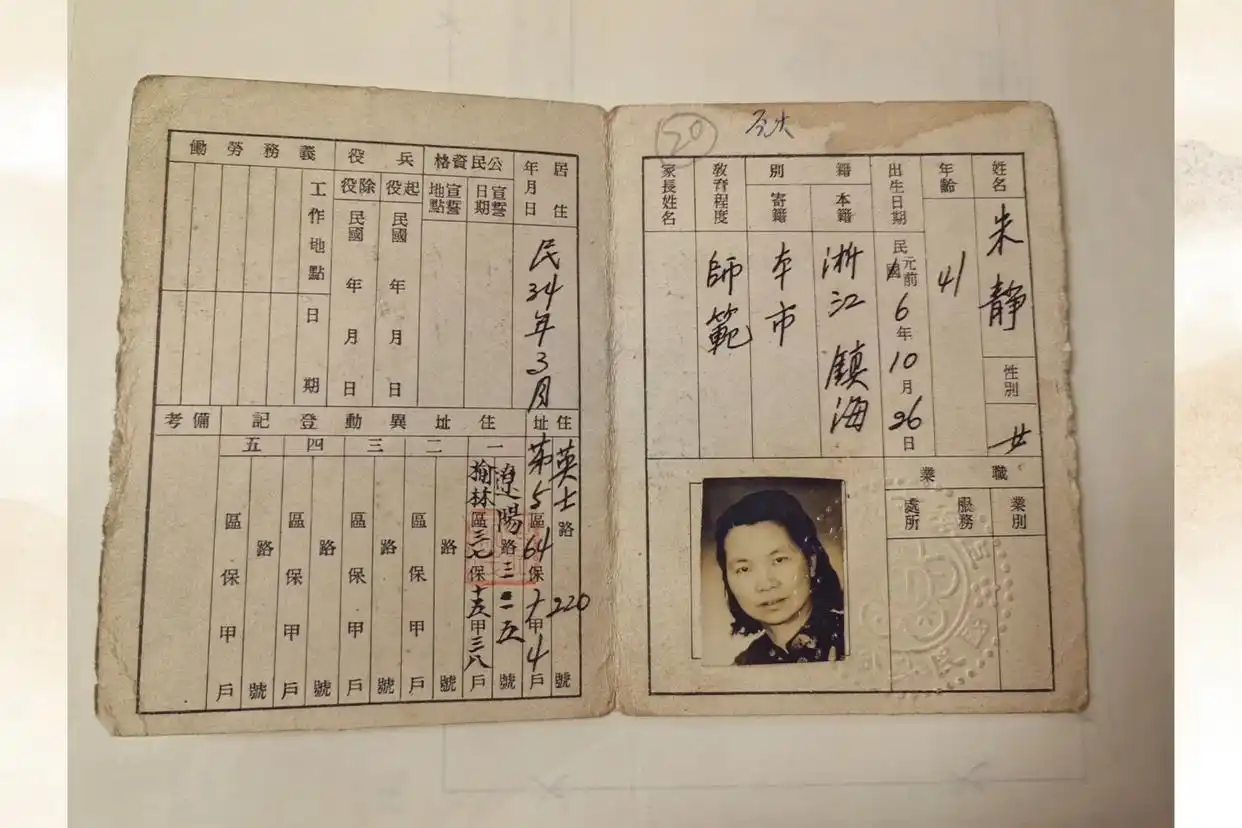 20
姓名 朱靜
性別 女
年齡 41
出生日期 民國元前6年10月26日
籍別
本籍 浙江鎮海
寄籍 本市
教育程度 師範
家長姓名
職業
業別
服務處所
居住年月日 民34年3月
公民資格
宣誓日期
宣誓地點
兵役
起役 民國 年 月 日
除役 民國 年 月 日
義務勞働
工作地點
日期
住址 英士路220號
第5區64保十甲4戶
住址異動登記
一 遼陽路三一五號
榆林區三七保十五甲三八戶
二 路 號
區 保 甲 戶
三 路 號
區 保 甲 戶
四 路 號
區 保 甲 戶
五 路 號
區 保 甲 戶
備考